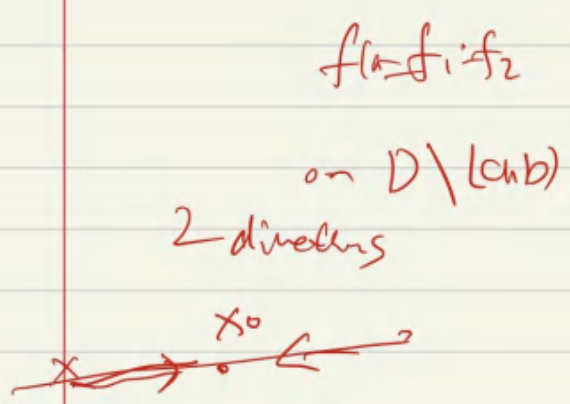 f(a=f₁·f₂
on D\(a,b)
2 directions
x₀
x